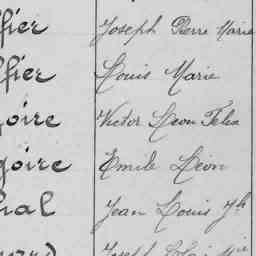 ffier Joseph Pierre Marie
ffier Louis Marie
goire Victor Leon Felix
goire Emile Léon
Jean Louis Jh
Joseph